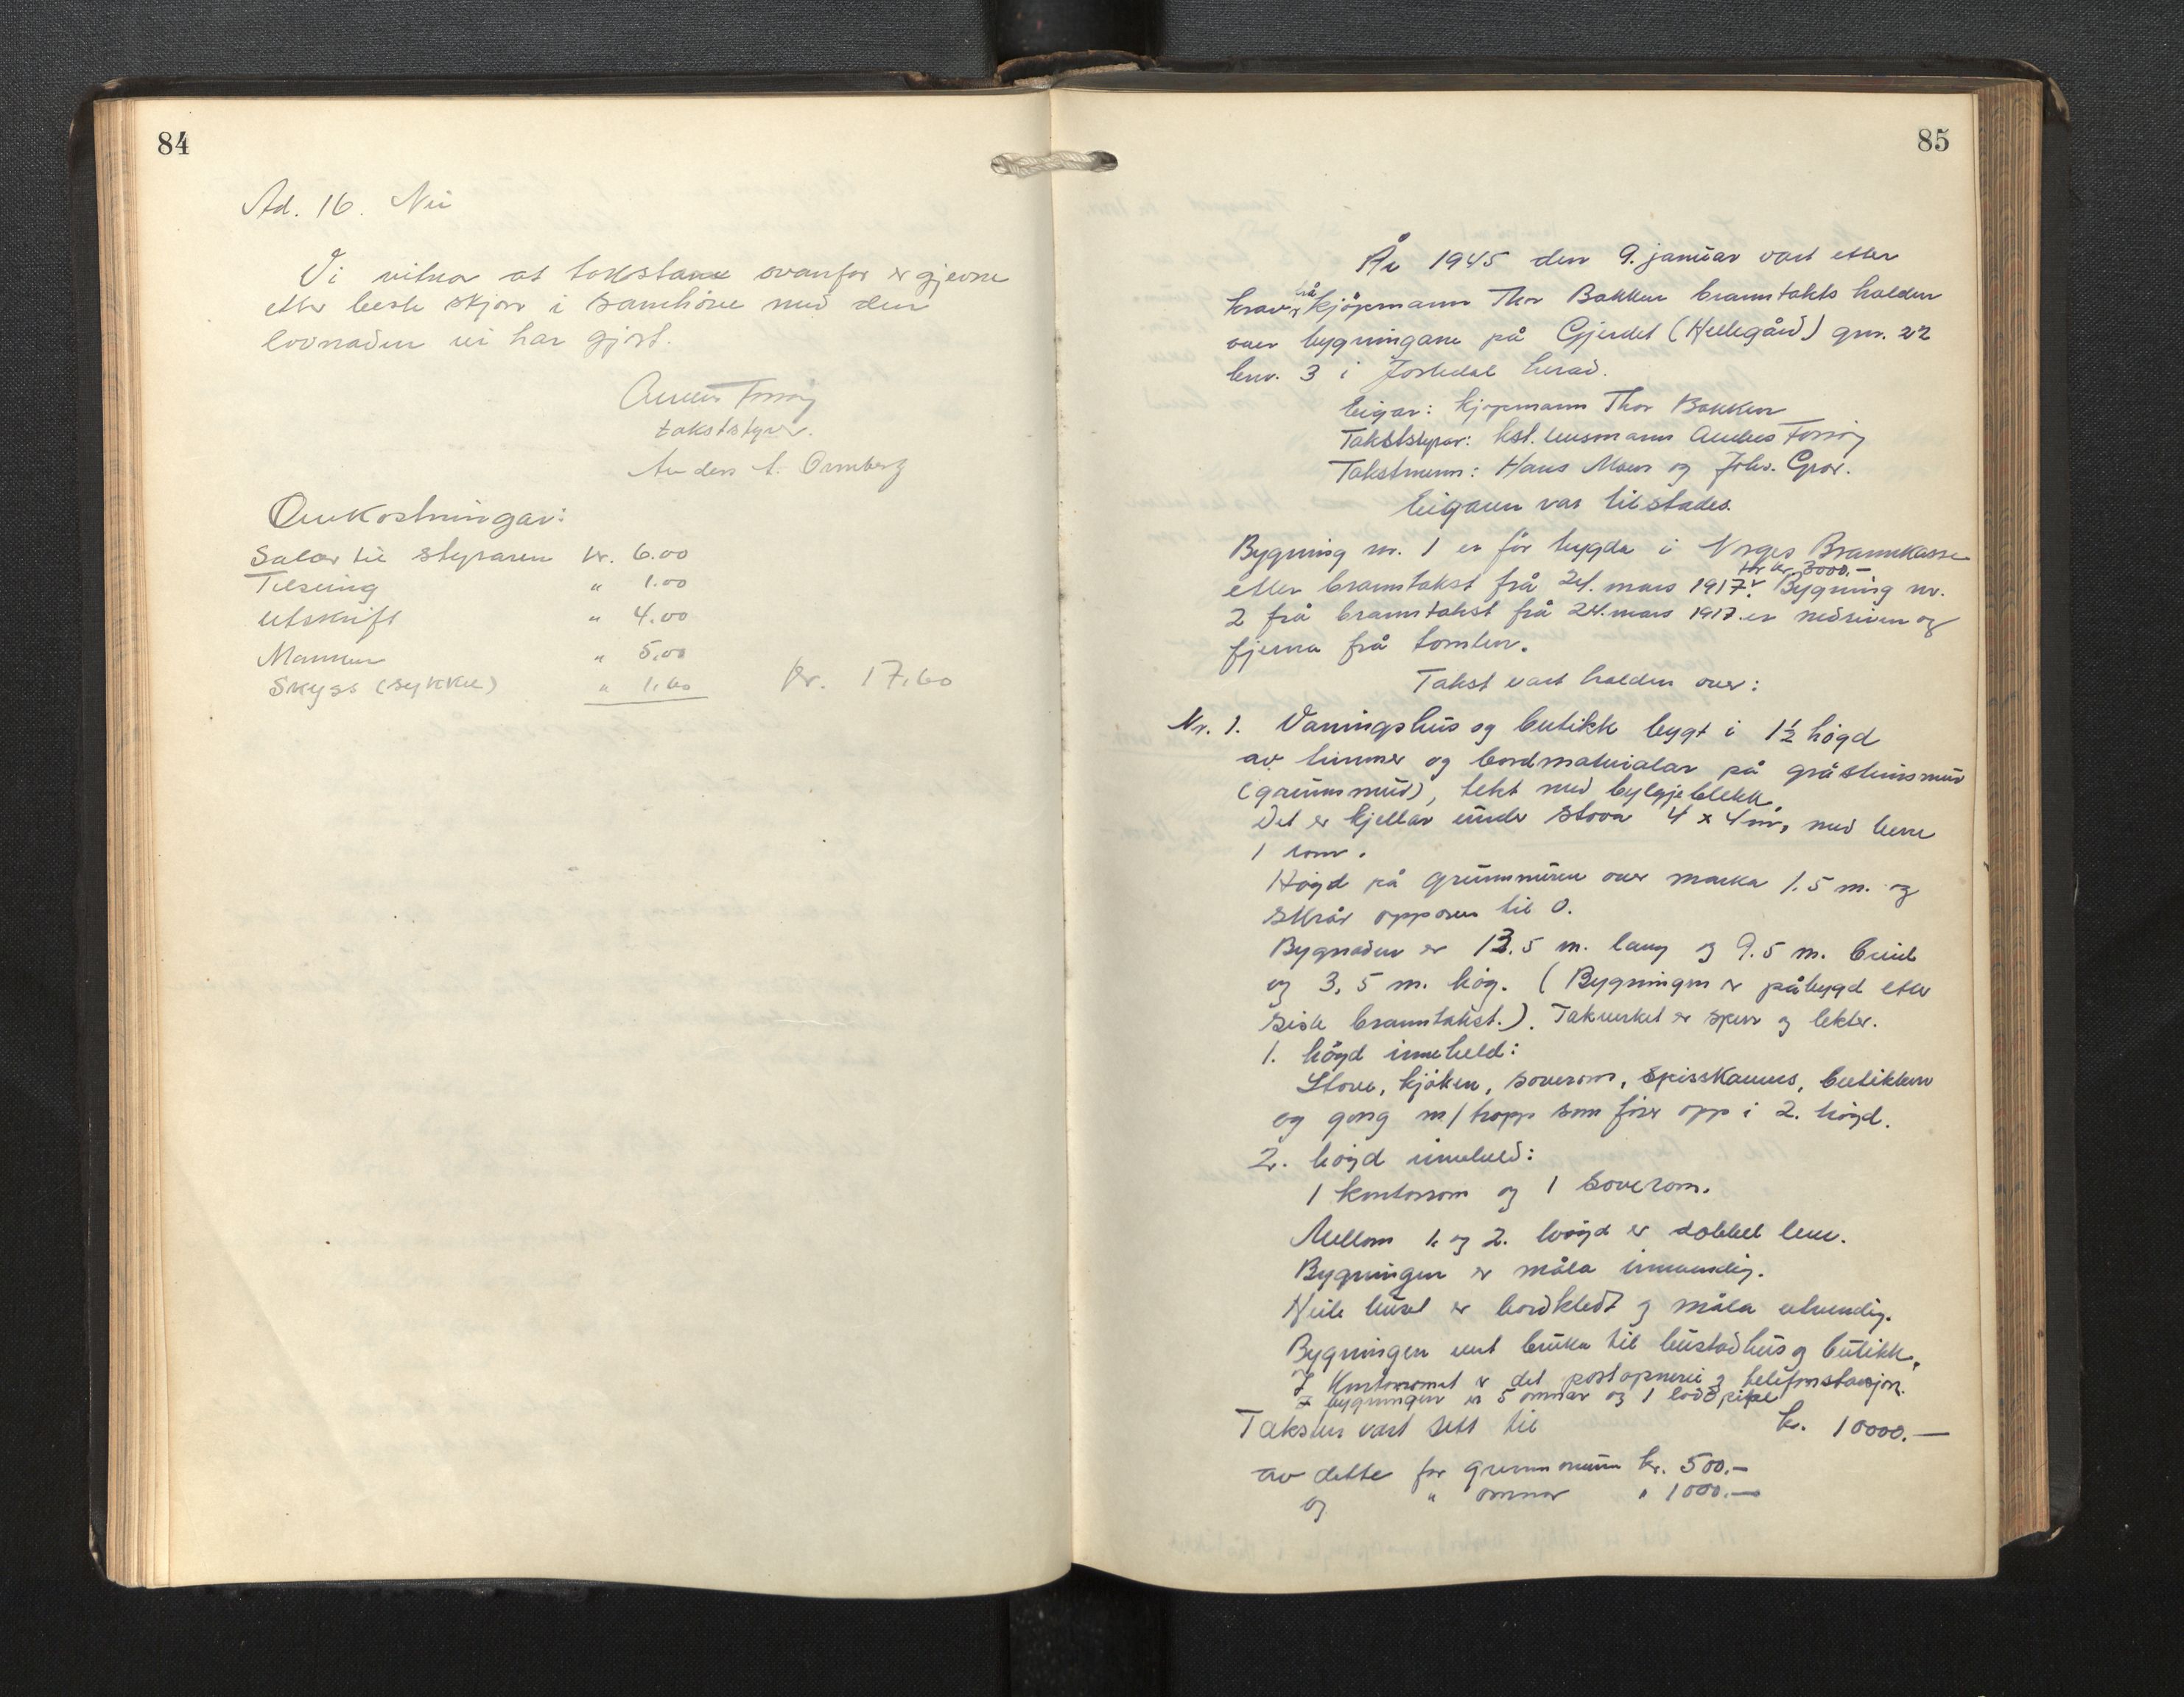 84
Ad. 16. Nei
Vi vitnar at takstane ovanfor er gjevne
etter beste skjøn i samhöve med den
lovnaden vi har gjort.
takststyrar.
Anders A. Ormberg
Omkostningar:
Salær til styraren kr. 6.00
Tilseiing " 1.00
Utskrift " 4.00
Mannen " 5,00
Skyss (sykkel) " 1,60 kr. 17,60
85
År 1945 den 9. januar vart etter
krav frå kjöpmann Thor Bakken branntakst halden
over bygningane på Gjerdet (Hellegård) gnr. 22
bnr. 3 i Jostedal herad.
Eigar: kjøpmann Thor Bakken
Takststyrar: kst. lensmann
Takstmenn: Hans Moen og Johs. Grov.
Eigaren var tilstades.
Bygning nr. 1 er för trygda i Norges Brannkasse
etter branntakst frå 24. mars 1917 for kr. 3000.- Bygning nr.
2 frå branntakst frå 24. mars 1917 er nedriven og
fjerna frå tomten.
Takst vart halden over:
Nr. 1. Vaningshus og butikk bygt i 1½ högd
av timmer og bordmaterialar på gråsteinsmur
(grunnmur), tekt med bylgjeblekk.
Det er kjellar under stova 4 x 4 m, med berre
1 rom.
Högd på grunnmuren over marka 1.5 m. og
skrår oppover til 0.
Bygnaden er 13.5 m. lang og 9.5 m. breid
og 3,5 m. høg. (Bygningen er påbygd etter
siste branntakst.). Takverket er sperr og lekter.
1. högd inneheld:
Stove, kjöken, soverom, spisskammers, butikken
og gong m/tropp som förer opp i 2. högd.
2. högd inneheld:
1 kontorrom og 1 soverom.
Mellom 1. og 2. högd er dobbel lem.
Bygningen er måla innvendig.
Heile huset er bordkledt og måla utvendig.
Bygningen vert bruka til bustadhus og butikk.
I kontorromet er det postopneri og telefonstasjon.
I bygningen er 5 omnar og 1 loddpipe
Taksten vart sett til kr. 10000.—
av dette for grunnmuren kr. 500.-
og " omnar " 1000.—